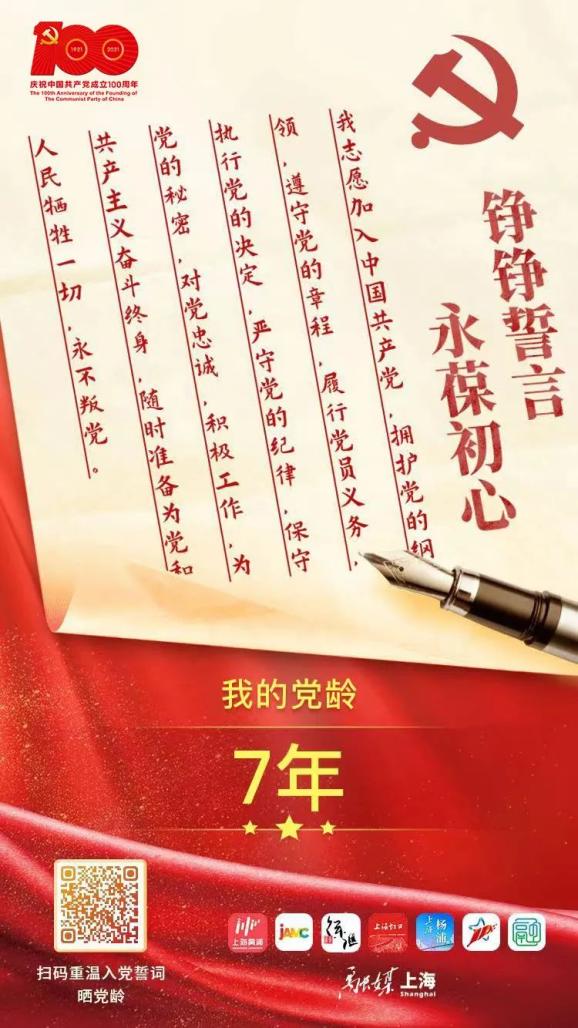 100
1921
2021
庆祝中国共产党成立100周年
The 100th Anniversary of the Founding of
The Communist Party of China
铮铮誓言
永葆初心
我志愿加入中国共产党，拥护党的纲
领，遵守党的章程，履行党员义务，
执行党的决定，严守党的纪律，保守
党的秘密，对党忠诚，积极工作，为
共产主义奋斗终身，随时准备为党和
人民牺牲一切，永不叛党。
我的党龄
7年
扫码重温入党誓词
晒党龄
上海黄浦
上海虹口
上海
杨浦
融
融媒 上海
Shanghai